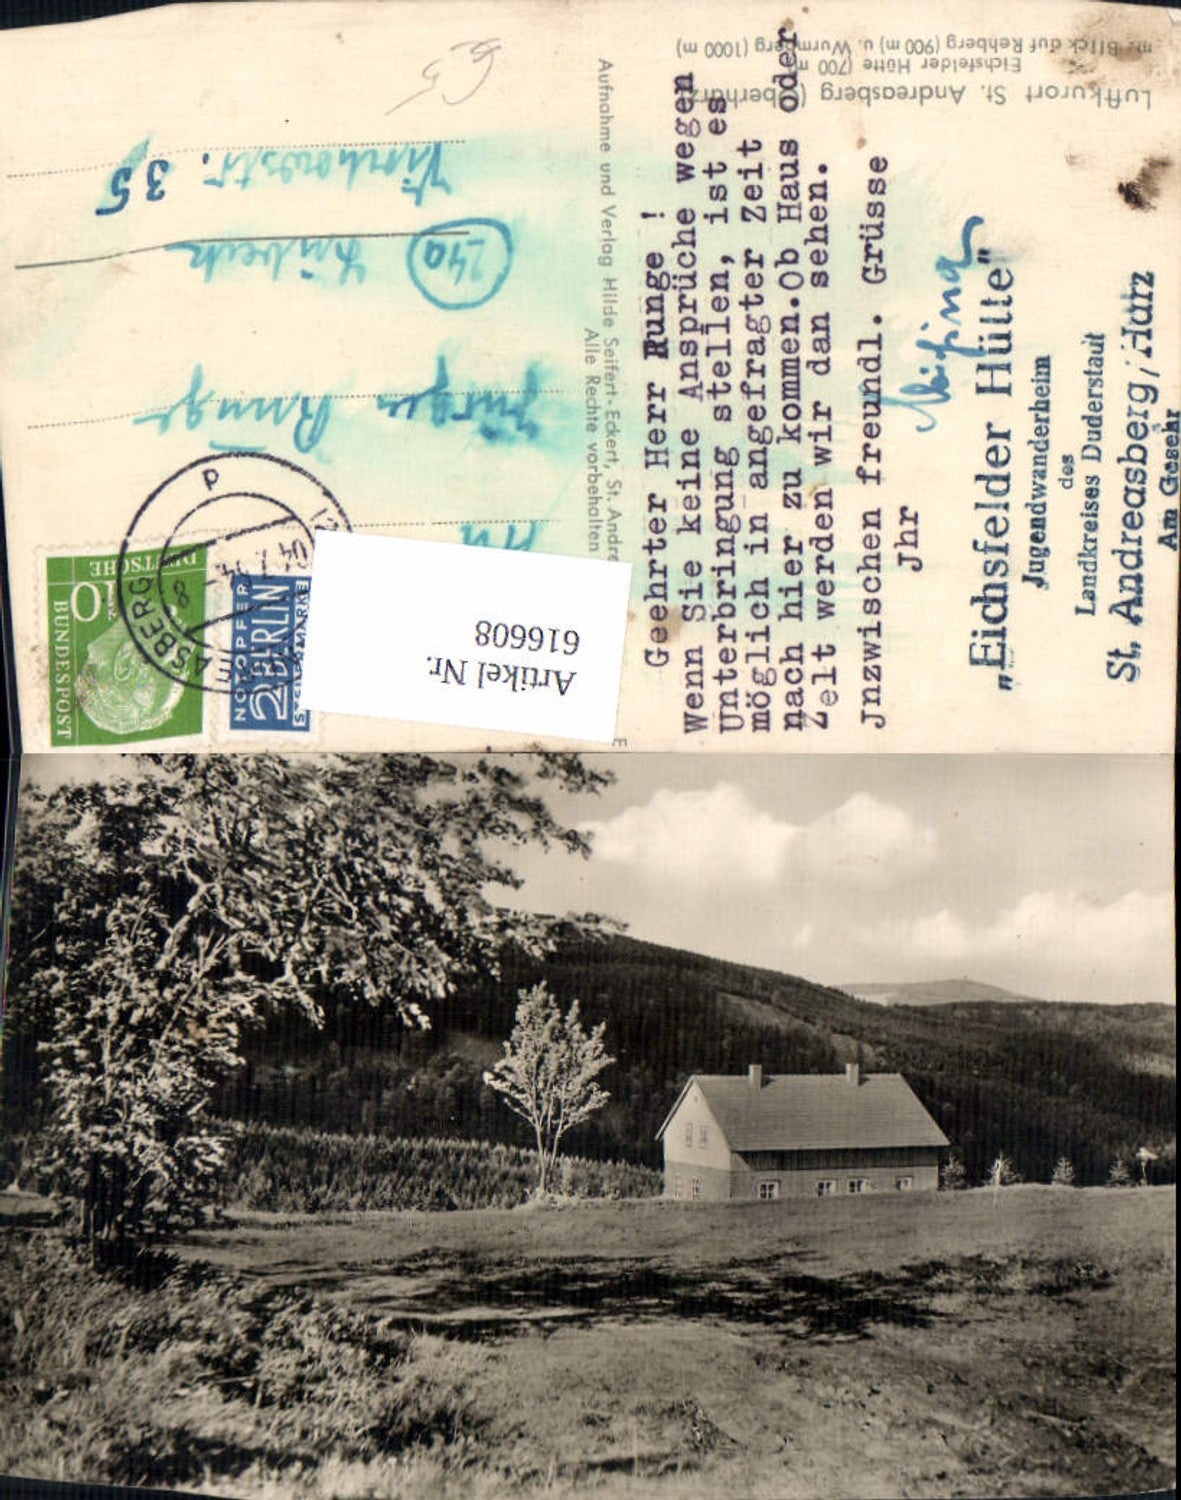 Luftkurort St. Andreasberg (Oberharz)
Eichsfelder Hütte (700 m)
mit Blick auf Rehberg (900 m) u. Wurmberg (1000 m)
Geehrter Herr Runge !
Wenn Sie keine Ansprüche wegen
Unterbringung stellen, ist es
möglich in angefragter Zeit
nach hier zu kommen.Ob Haus oder
Zelt werden wir dan sehen.
Jnzwischen freundl. Grüsse
Jhr
"Eichsfelder Hütte"
Jugendwanderheim
des
Landkreises Duderstadt
St. Andreasberg/Harz
Am Gesehr
Aufnahme und Verlag Hilde Seifert-Eckert, St. Andre
Alle Rechte vorbehalten
DEUTSCHE
BUNDESPOST
10
NOTOPFER
2 BERLIN
STEUERMARKE
ASBERG
An
Jürgen Runge
(24a) Lübeck
35
Artikel Nr.
616608